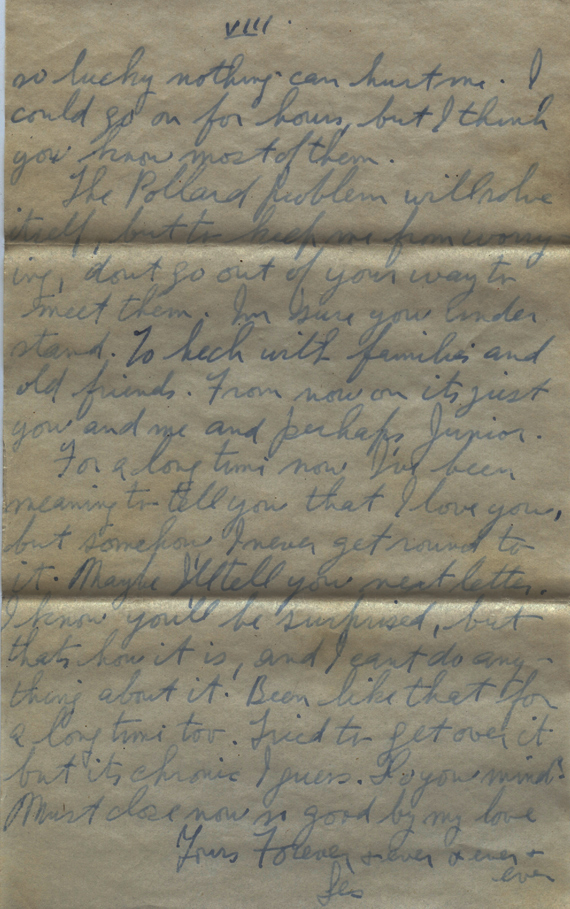 VIII.
so lucky nothing can hurt me. I
could go on for hours, but I think
you know most of them.
The Pollard problem will solve
itself, but to keep me from worry
ing, dont go out of your way to
meet them. Im sure you under
stand. To heck with families and
old friends. From now on its just
you and me and perhaps Junior.
For a long time now I've been
meaning to tell you that I love you,
but somehow I never get round to
it. Maybe I'll tell you next letter.
I know you'll be surprised, but
thats how it is, and I cant do any-
thing about it. Been like that for
a long time too. Tried to get over it
but its chronic I guess. Do you mind?
Must close now so good by my love
Yours Forever & ever & ever &
ever
Les